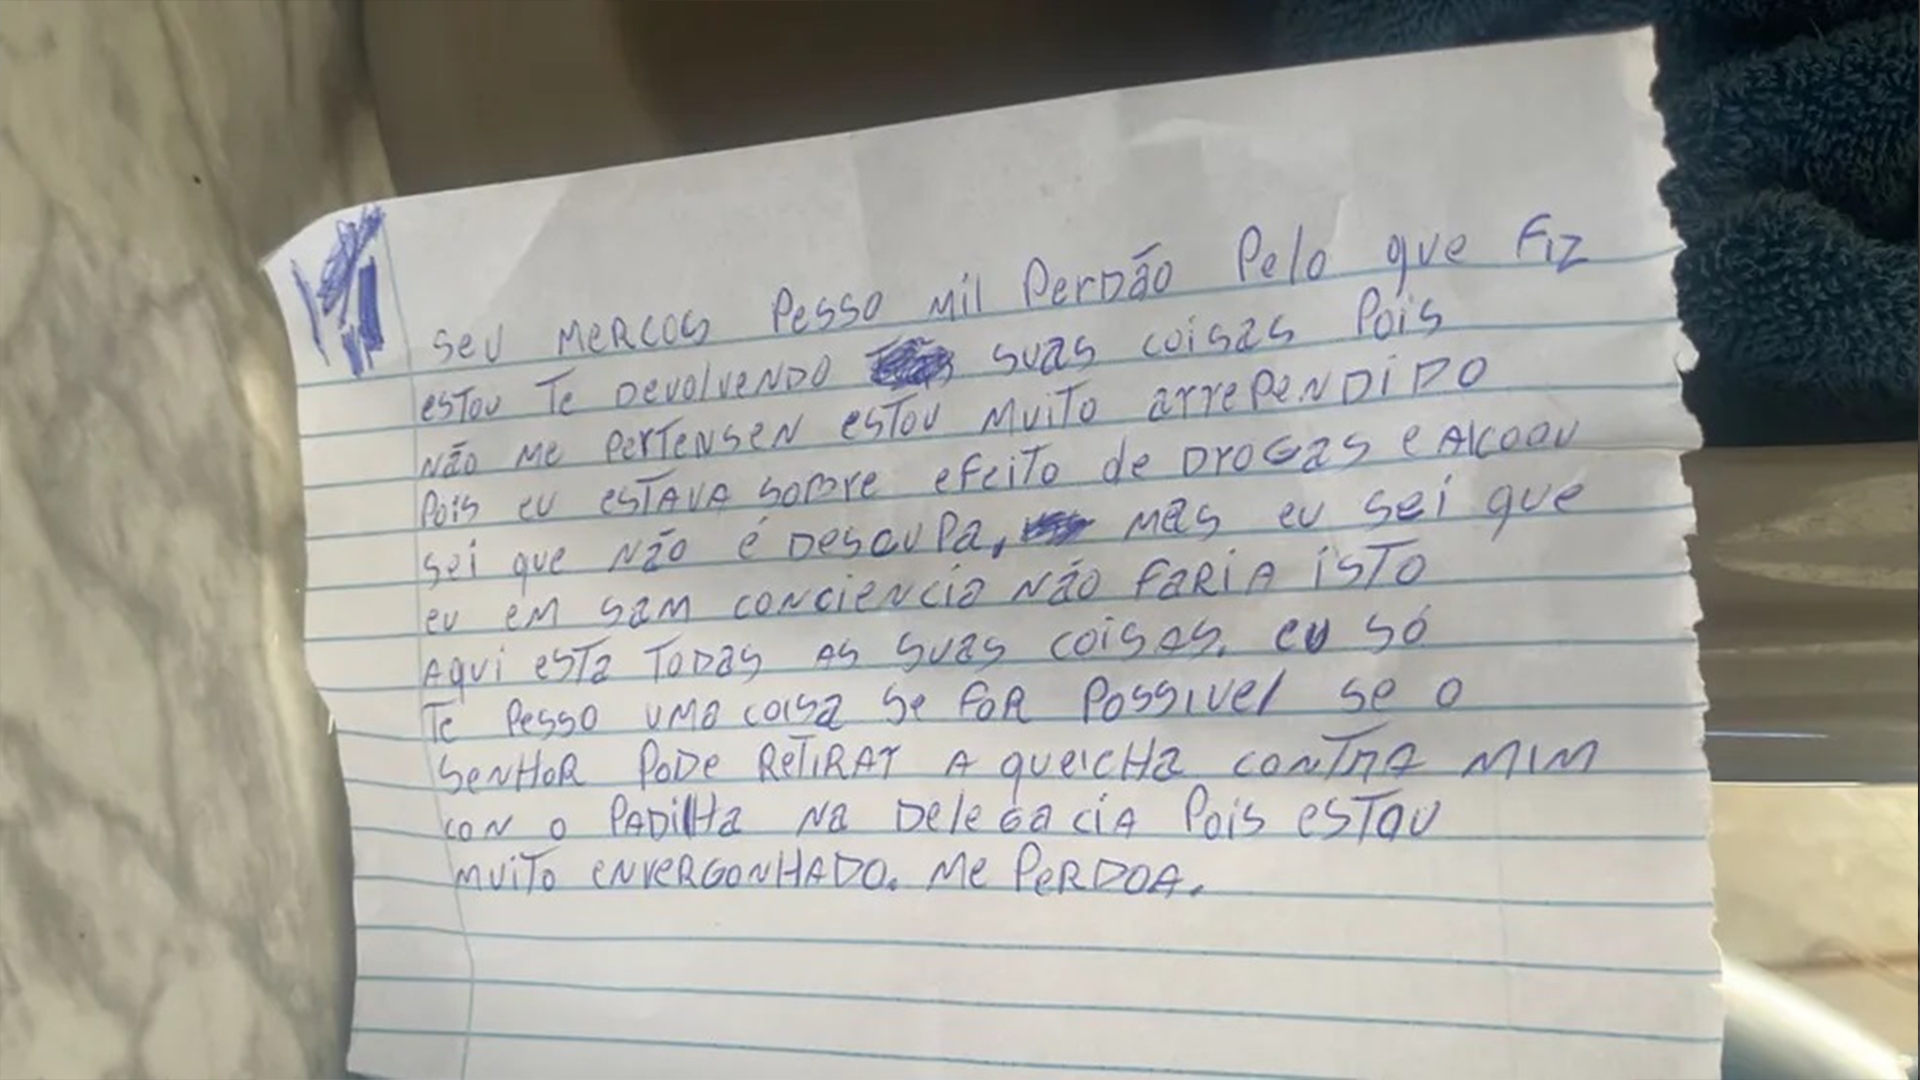 seu Mercos Pesso mil Perdão Pelo que Fiz
estou Te Devolvendo suas coisas Pois
não me Pertensen estou muito arrependido
Pois eu estava sobre efeito de Drogas e Alcoou
sei que não é Descupa, mas eu sei que
eu em sam conciencia não faria isto
Aqui esta Todas as suas coisas. eu só
Te Pesso uma coisa se for Possivel se o
senhor pode retirar a queicha contra mim
con o Padilha na Delegacia Pois estou
muito envergonhado. me Perdoa.